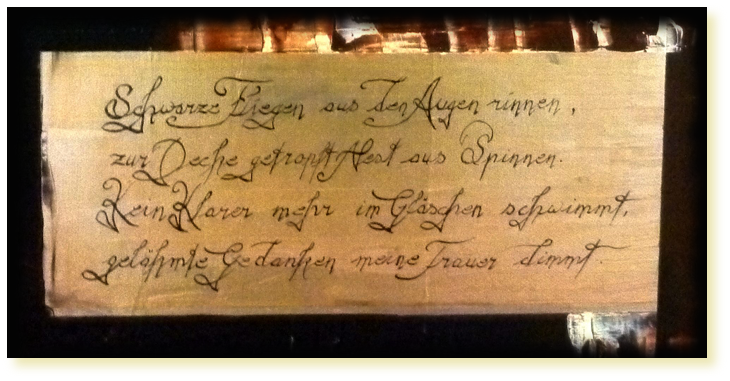 Schwarze Fliegen aus den Augen rinnen,
zur Decke getropft Nest aus Spinnen.
Kein Klarer mehr im Gläschen schwimmt,
gelähmte Gedanken meine Trauer dimmt.